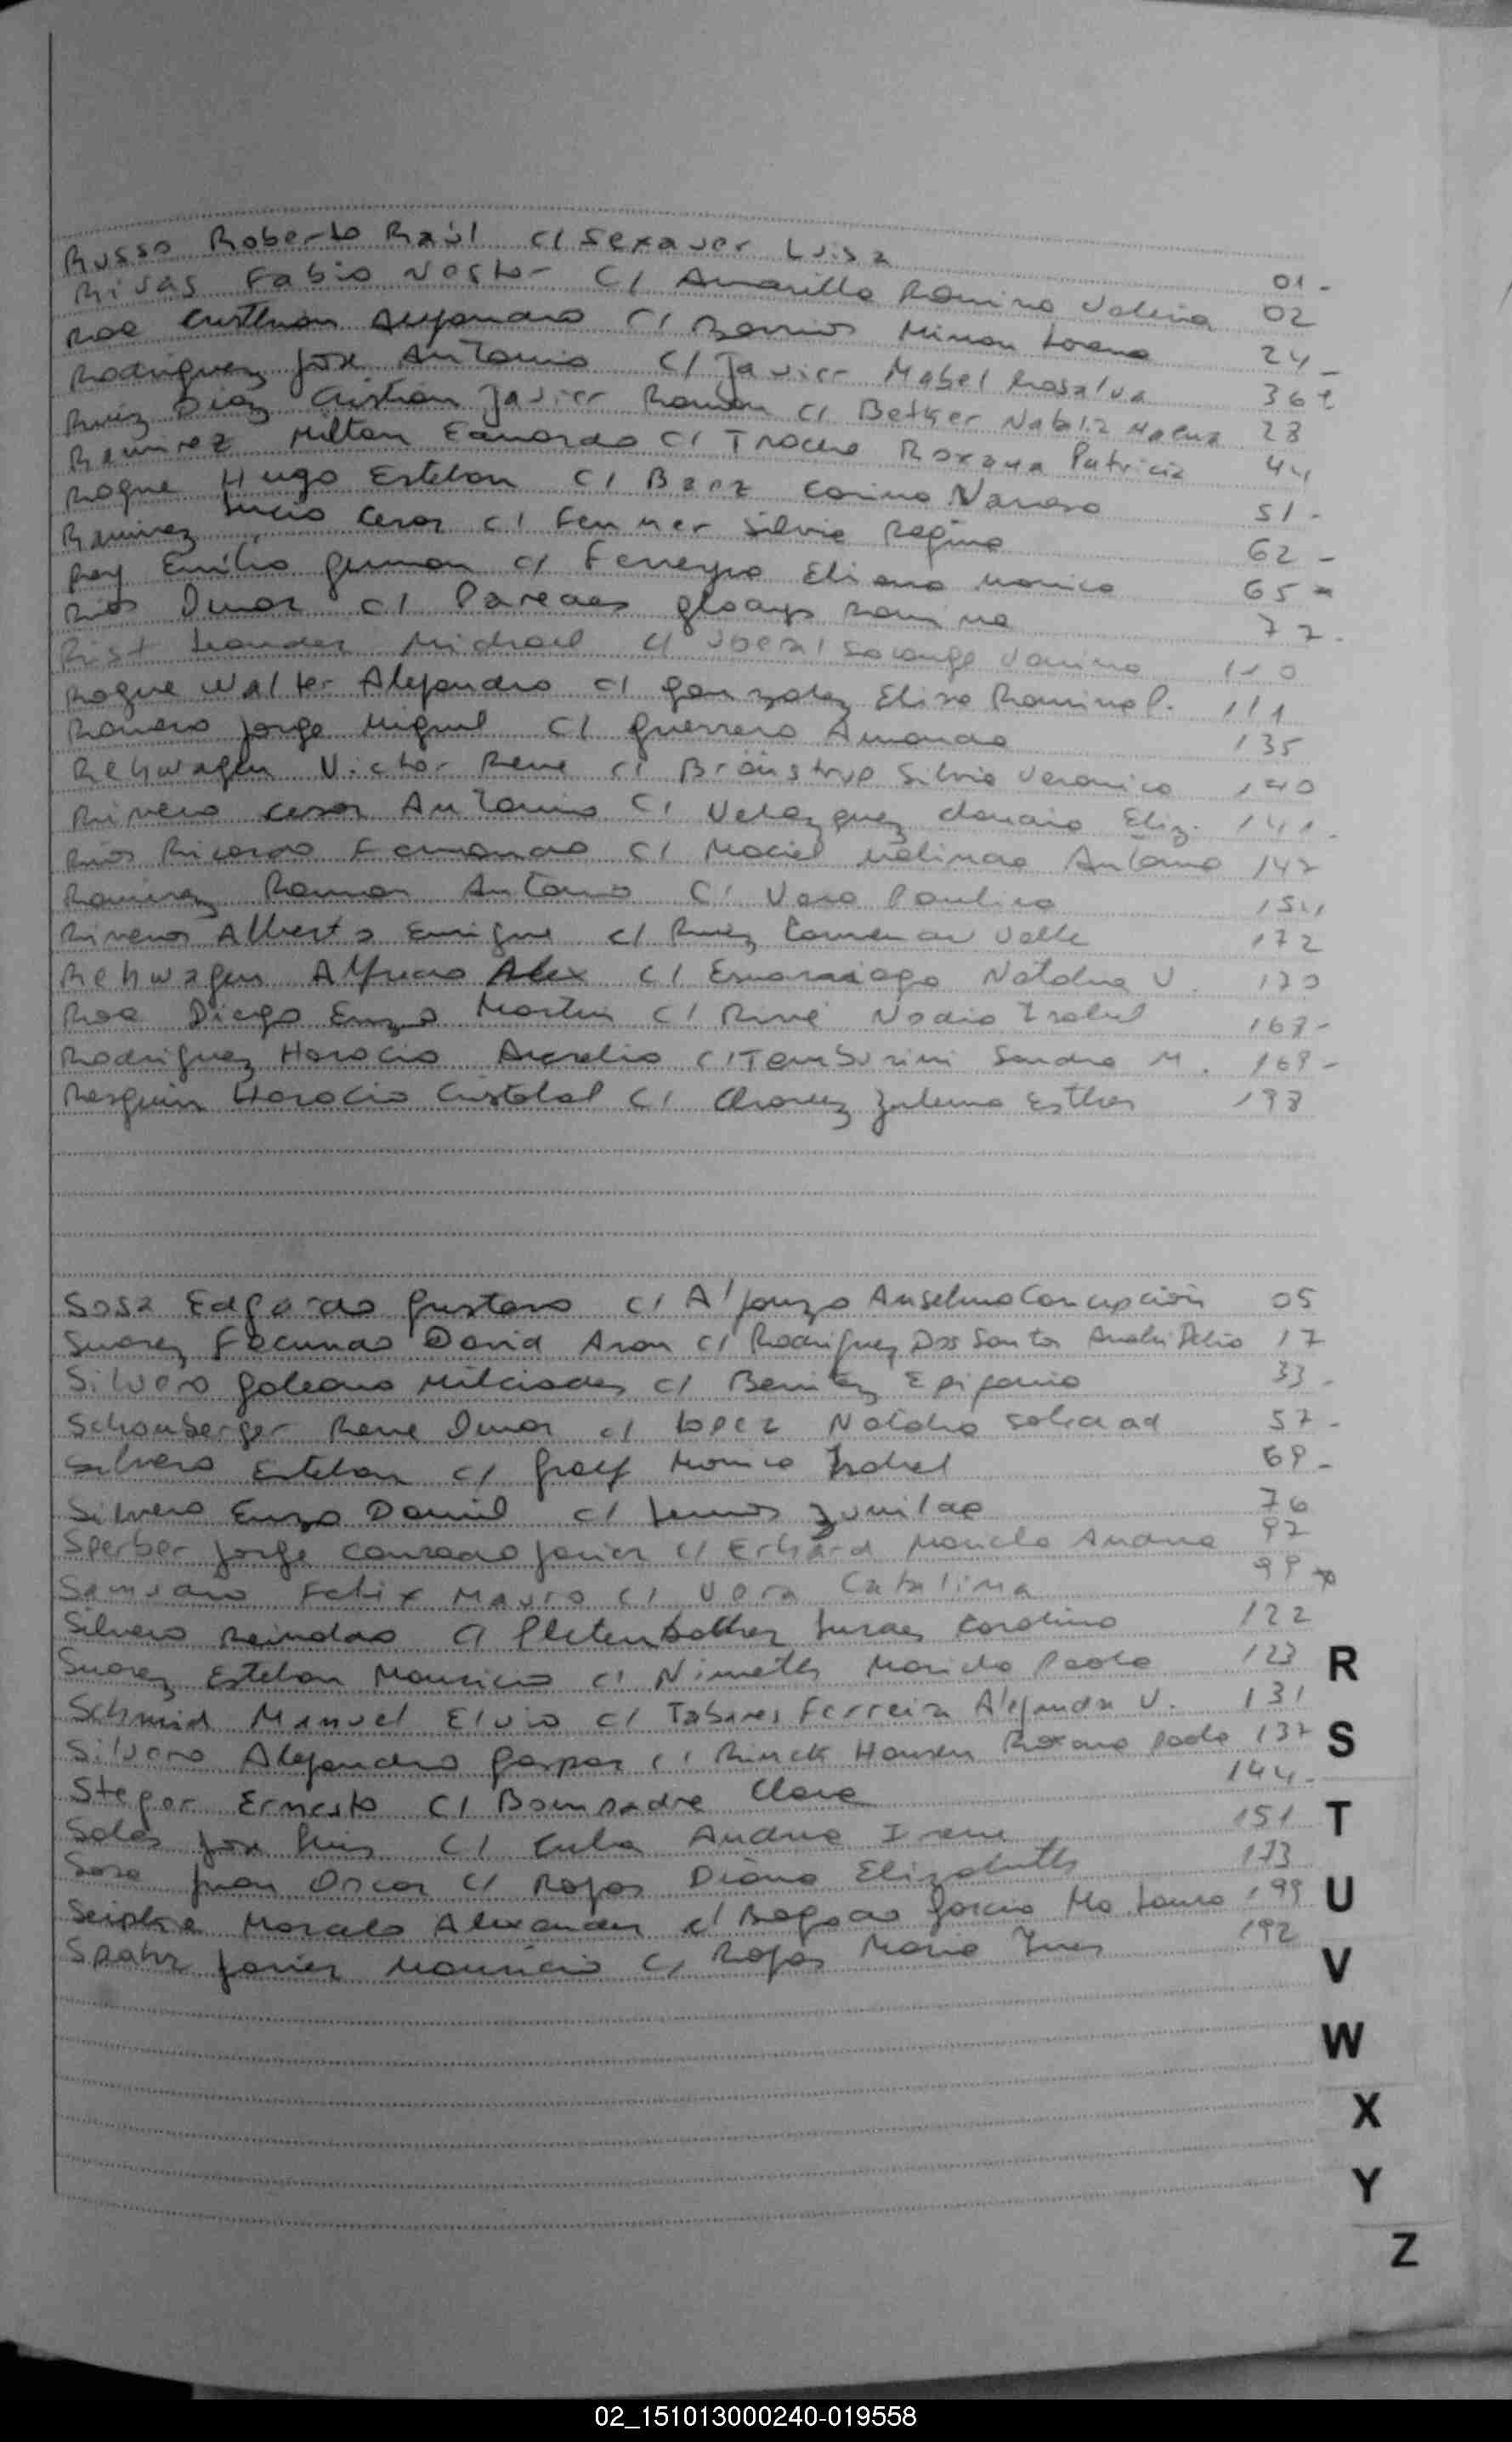 Russo Roberto Raúl c/ Sexaver Luisa 01-
Rivas Fabio Nestor c/ Amarilla Romina Valeria 02
Roa Cristhian Alejandro c/ Barrios Mirian Lorena 24-
Rodriguez Jose Antonio c/ Javier Mabel Rosalva 36
Ruiz Diaz Cristian Javier Ramon c/ Betker Nabila Malena 28
Ramirez Milton Eduardo c/ Trocero Roxana Patricia 44
Roque Hugo Esteban c/ Baez Corina Vanesa 51-
Ramirez Lucio Cesar c/ Fenner Silvia Regina 62-
Rey Emilio German c/ Ferreyra Eliana Monica 65-
Rios Omar c/ Paredes Gladys Romina 77-
Rist Leander Michael c/ Solange Janina 110
Roque Walter Alejandro c/ Gonzalez Elisa Romina P. 111
Romero Jorge Miguel c/ Guerrero Amanda 135
Rehwagen Victor Rene c/ Bränstrup Silvia Veronica 140
Rivero Cesar Antonio c/ Velazquez Eliz. 141-
Rios Ricardo Fernando c/ Maciel Melinda Antonia 147
Ramirez Ramon Antonio c/ Vera Paulina 154
Riveros Alberto Enrique c/ Ruiz Carmen del Valle 172
Rehwagen Alfredo Alex c/ Natalia V. 170
Roa Diego Enzo Martin c/ Nadia Isabel 167-
Rodriguez Horacio Aurelio c/ Temburini Sandra M. 169-
Resquin Horacio Cristobal c/ Chavez Zulema Esther 198
Sosa Edgardo Gustavo c/ Alfonzo Anselma Concepción 05
Suarez Facundo David Aron c/ Rodriguez Dos Santos Delia 17
Silvero Galeano Milciades c/ Benitez Epifania 33-
Schonberger Rene Omar c/ Lopez Natalia Soledad 57-
Silvero Esteban c/ Graef Monica Isabel 69-
Silvero Enzo Daniel c/ Lemos Zunilda 76
Sperber Jorge Conrado Javier c/ Erhard Mariela Andrea 97
Samudio Felix Mauro c/ Vera Catalina 99
Silvero Reinaldo c/ Carolina 122
Suarez Esteban Mauricio c/ Nimeth Mariela Paola 123
Schmid Manuel Elvio c/ Tabares Ferreira Alejandra V. 131
Silvero Alejandro Gaspar c/ Rinck Hansen Roxana Paola 137
Steger Ernesto c/ Bompadre Clara 144-
Sales Jose Luis c/ Andrea Irene 151
Sosa Juan Oscar c/ Rojas Diana Elizabeth 173
Seipke Marcelo Alexander c/ Garcia Ma. Laura 199
Spahr Javier Mauricio c/ Rojas Maria Ines 192
R
S
T
U
V
W
X
Y
Z
02_151013000240-019558